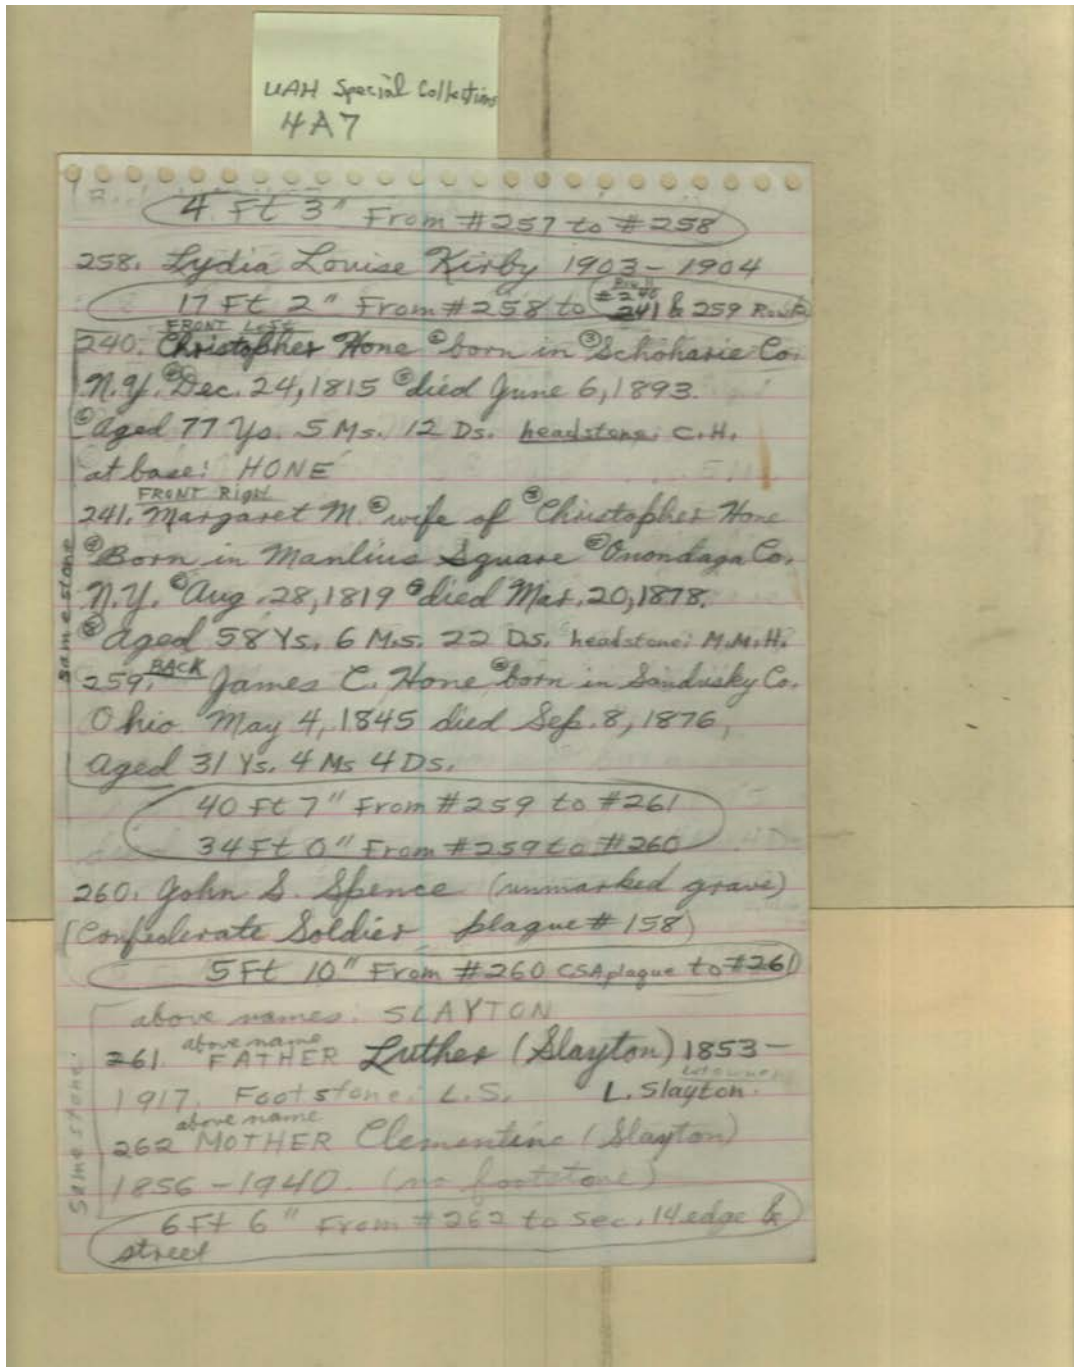 UAH Special Collections
4A7
4 Ft 3" From #257 to #258
258. Lydia Louise Kirby 1903 - 1904
17 Ft 2" From #258 to #240 241 & 259 Row B
FRONT Left
240. Christopher Hone ② born in ③ Schoharie Co.
N.Y. ④ Dec. 24, 1815 ⑤ died June 6, 1893.
⑥ aged 77 Ys. 5 Ms. 12 Ds. headstone: C.H.
at base: HONE
FRONT Right
241. Margaret M. ② wife of ③ Christopher Hone
④ Born in Manlius Square ⑤ Onondaga Co.
N.Y. ⑥ Aug. 28, 1819 ⑦ died Mar. 20, 1878.
⑧ aged 58 Ys. 6 Ms. 22 Ds. headstone: M.M.H.
same stone
259. BACK James C. Hone ② born in Sandusky Co.
Ohio May 4, 1845 died Sep. 8, 1876,
aged 31 Ys. 4 Ms 4 Ds.
40 Ft 7" From #259 to #261
34 Ft 0" From #259 to #260
260. John S. Spence (unmarked grave)
(Confederate Soldier plaque # 158)
5 Ft 10" From #260 CSA plaque to #261
above names: SLAYTON
above name
261. FATHER Luther (Slayton) 1853 -
lot owner
1917. Footstone: L.S. L. Slayton.
above name
262 MOTHER Clementine (Slayton)
1856 - 1940. (no footstone)
same stone:
6 Ft 6" From #262 to Sec. 14 edge &
street